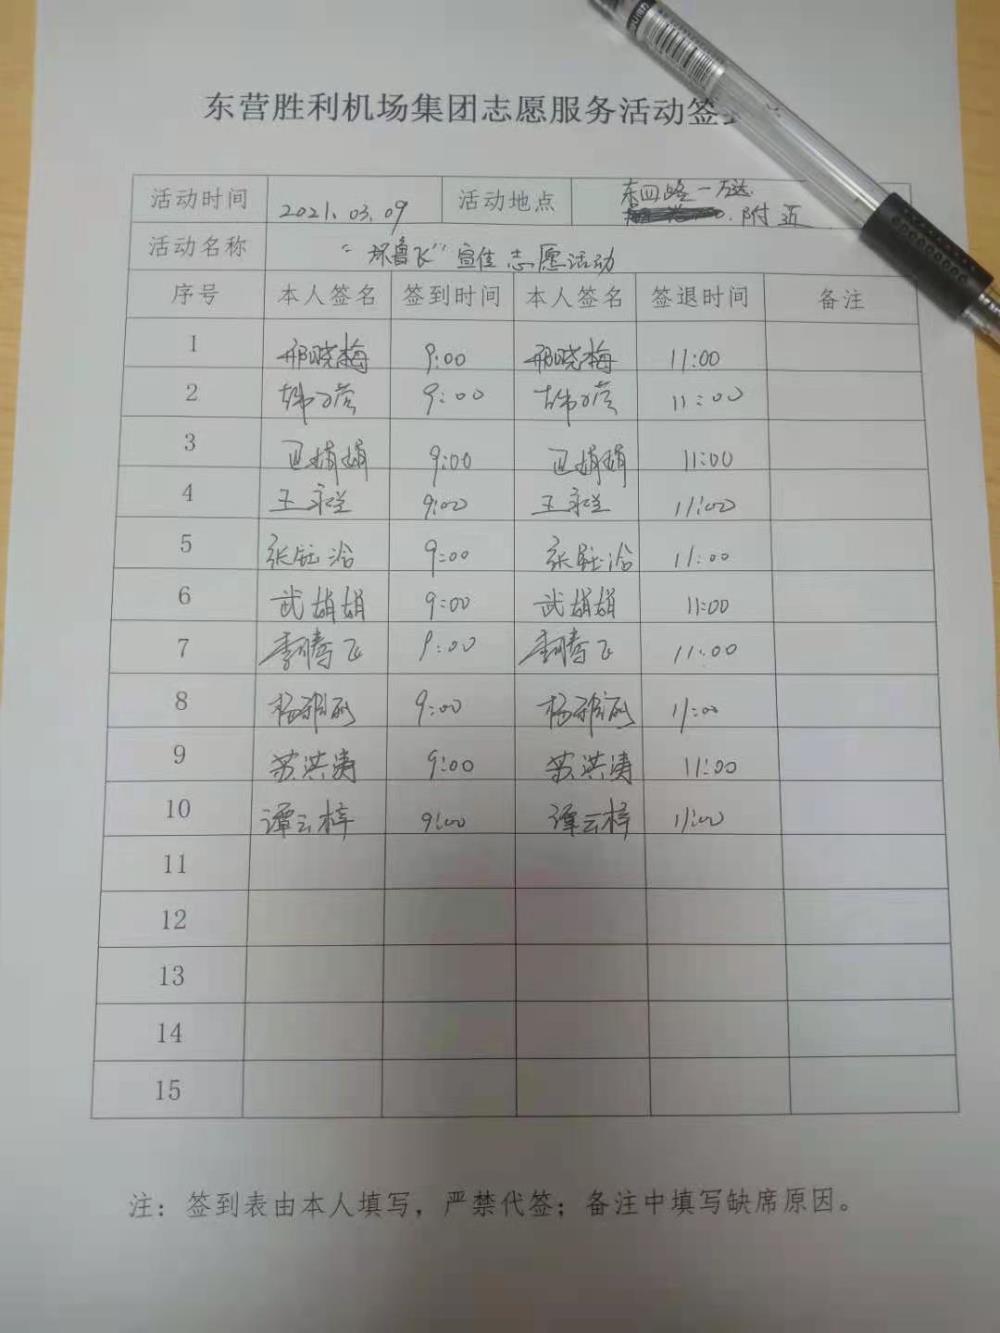 东营胜利机场集团志愿服务活动签
活动时间 2021.03.09 活动地点 东四路一万达 附近
活动名称 “环鲁飞”宣传志愿活动
序号 本人签名 签到时间 本人签名 签退时间 备注
1 邢晓梅 9:00 邢晓梅 11:00
2 9:00 11:00
3 娟娟 9:00 娟娟 11:00
4 王 9:00 王 11:00
5 张钰 9:00 张钰 11:00
6 武娟娟 9:00 武娟娟 11:00
7 李腾飞 9:00 李腾飞 11:00
8 杨 9:00 杨 11:00
9 苏洪涛 9:00 苏洪涛 11:00
10 谭云梓 9:00 谭云梓 11:00
11
12
13
14
15
注：签到表由本人填写，严禁代签；备注中填写缺席原因。